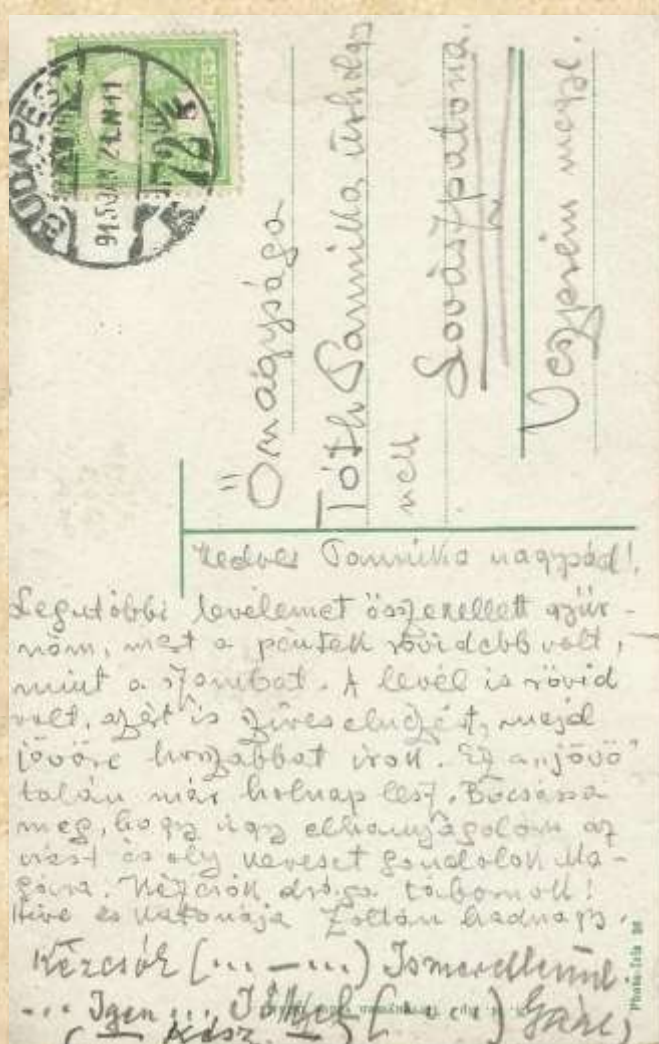 BUDAPEST
915 JAN 21
72
Önagysága
Tóth Pannika úrhölgy
nek
Lovászpatona.
Veszprém megye.
Kedves Pannika nagysád!
Legutóbbi levelemet össze kellett gyűr-
nöm, mert a péntek rövidebb volt,
mint a szombat. A levél is rövid
volt, azért is szíves elnézést, majd
jövőre hosszabbat irok. Ez a „jövő"
talán már holnap lesz. Bocsássa
meg, hogy úgy elhanyagolom az
irást és oly keveset gondolok Ma-
gára. Kézcsók drága tábornok!
Hive és katonája Zoltán hadnagy.
Kézcsók (... — ...) Ismeretlenül
... Igen ...